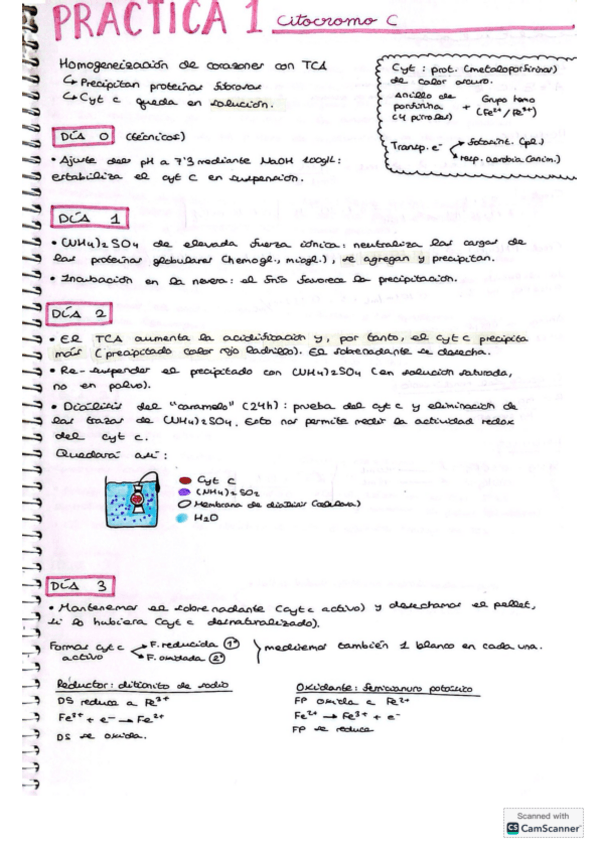 PRACTICA 1 Citocromo C
Homogeneización de corazones con TCA
↳ Precipitan proteínas fibrosas
↳ Cyt c queda en solución.
Cyt : prot. (metaloporfirinas)
de color oscuro.
Anillo de
porfirina
(4 pirroles)
+ Grupo hemo
(Fe2+ / Fe3+)
Transp. e-
fotosínt. (pl.)
resp. aerobia (anim.)
DÍA 0 (técnicos)
• Ajuste del pH a 7'3 mediante NaOH 100g/L:
estabiliza el cyt c en suspensión.
DÍA 1
• (NH4)2SO4 de elevada fuerza iónica: neutraliza las cargas de
las proteínas globulares (hemogl., miogl.), se agregan y precipitan.
• Incubación en la nevera: el frío favorece la precipitación.
DÍA 2
• El TCA aumenta la acidificación y, por tanto, el cyt c precipita
más (precipitado color rojo ladrillo). El sobrenadante se desecha.
• Re-suspender el precipitado con (NH4)2SO4 (en solución saturada,
no en polvo).
• Diálisis del "caramelo" (24h) : prueba del cyt c y eliminación de
las trazas de (NH4)2SO4. Esto nos permite medir la actividad redox
del cyt c.
Quedará así :
Cyt C
(NH4)2SO2
Membrana de diálisis (celulosa)
H2O
DÍA 3
• Mantenemos el sobrenadante (cyt c activo) y desechamos el pellet,
si lo hubiera (cyt c desnaturalizado).
Formas cyt c
activo
F. reducida (1º)
F. oxidada (2º)
mediremos también 1 blanco en cada una.
Reductor: ditionito de sodio
DS reduce a Fe3+
Fe3+ + e- → Fe2+
DS se oxida.
Oxidante: ferricianuro potásico
FP oxida a Fe2+
Fe2+ → Fe3+ + e-
FP se reduce
Scanned with
CS CamScanner